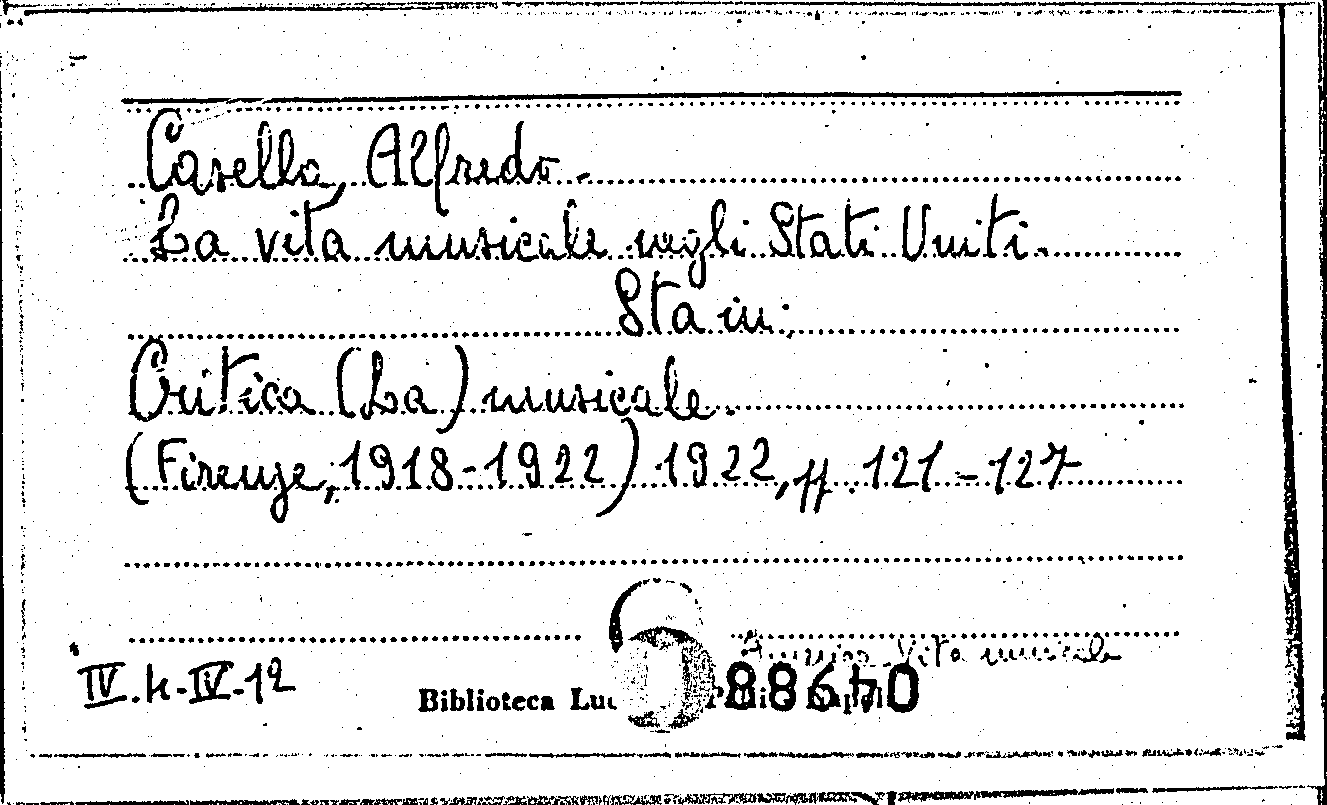 Casella, Alfredo.-
La vita musicale negli Stati Uniti.
Sta in:
Critica (La) musicale.
(Firenze, 1918-1922) 1922, pp. 121-127
Vita musicale
IV.4-IV-12
Biblioteca